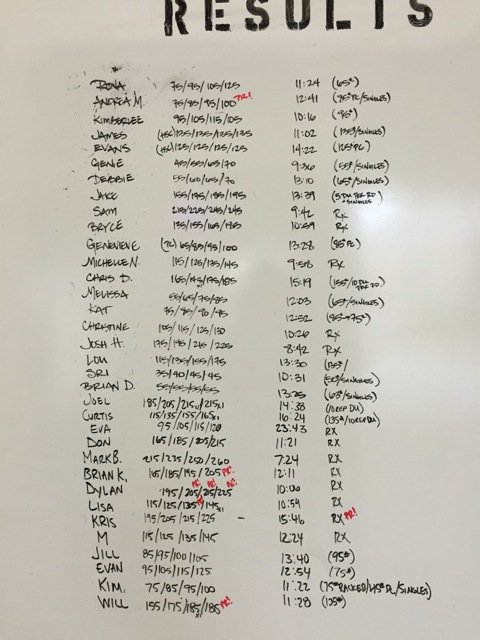 RESULTS
RONA 75/95/105/125 11:24 (65#)
ANDREA M. 75/85/95/100 PR! 12:41 (75# PC/SINGLES)
KIMBERLEE 95/105/115/105 10:16 (95#)
JAMES (HSC) 125/135/125/135 11:02 (135#/SINGLES)
EVANS (HSC) 125/125/125/125 14:22 (125# PC)
GENIE 45/55/65/70 9:36 (55#/SINGLES)
DEBBIE 55/60/65/70 13:10 (65#/SINGLES)
JAKE 155/175/185/195 13:39
SAM 215/225/245/245 9:42 RX
BRYCE 135/155/165/185 10:59 RX
GENEVIEVE (PC) 65/85/95/100 13:28 (85# PC)
MICHELLE N. 115/125/135/145 9:58 RX
CHRIS D. 165/175/185 15:19
MELISSA 55/65/75/85 12:03 (65#/SINGLES)
KAT 75/85/90/95 12:52
CHRISTINE 105/115/125/130 10:26 RX
JOSH H. 175/195/215/225 8:42 RX
LOU 115/135/155/175 13:30 (135#)
SRI 35/40/45/45 10:31 (50#/SINGLES)
BRIAN D. 55/55/55/55 13:25 (65#/SINGLES)
JOEL 185/205/215/215x1 14:38 (10 REP DU)
CURTIS 115/135/155/165x1 16:24 (135#/10 REP DU)
EVA 95/105/115/120 23:43 RX
DON 165/185/205/215 11:21 RX
MARK B. 215/235/250/260 7:24 RX
BRIAN K. 165/185/195/205 PR! 12:11 RX
DYLAN 195/205 PR!/215 PR!/225 PR! 10:00 RX
LISA 115/125/135 PR/145x1 10:54 RX
KRIS 195/205/215/225 - 15:46 RX PR!
M 115/125/135/145 12:24 RX
JILL 85/95/100/105 13:40 (95#)
EVAN 95/105/115/125 12:54 (75#)
KIM. 75/85/95/100 11:22
WILL 155/175/185x1/185 PR! 11:28 (125#)